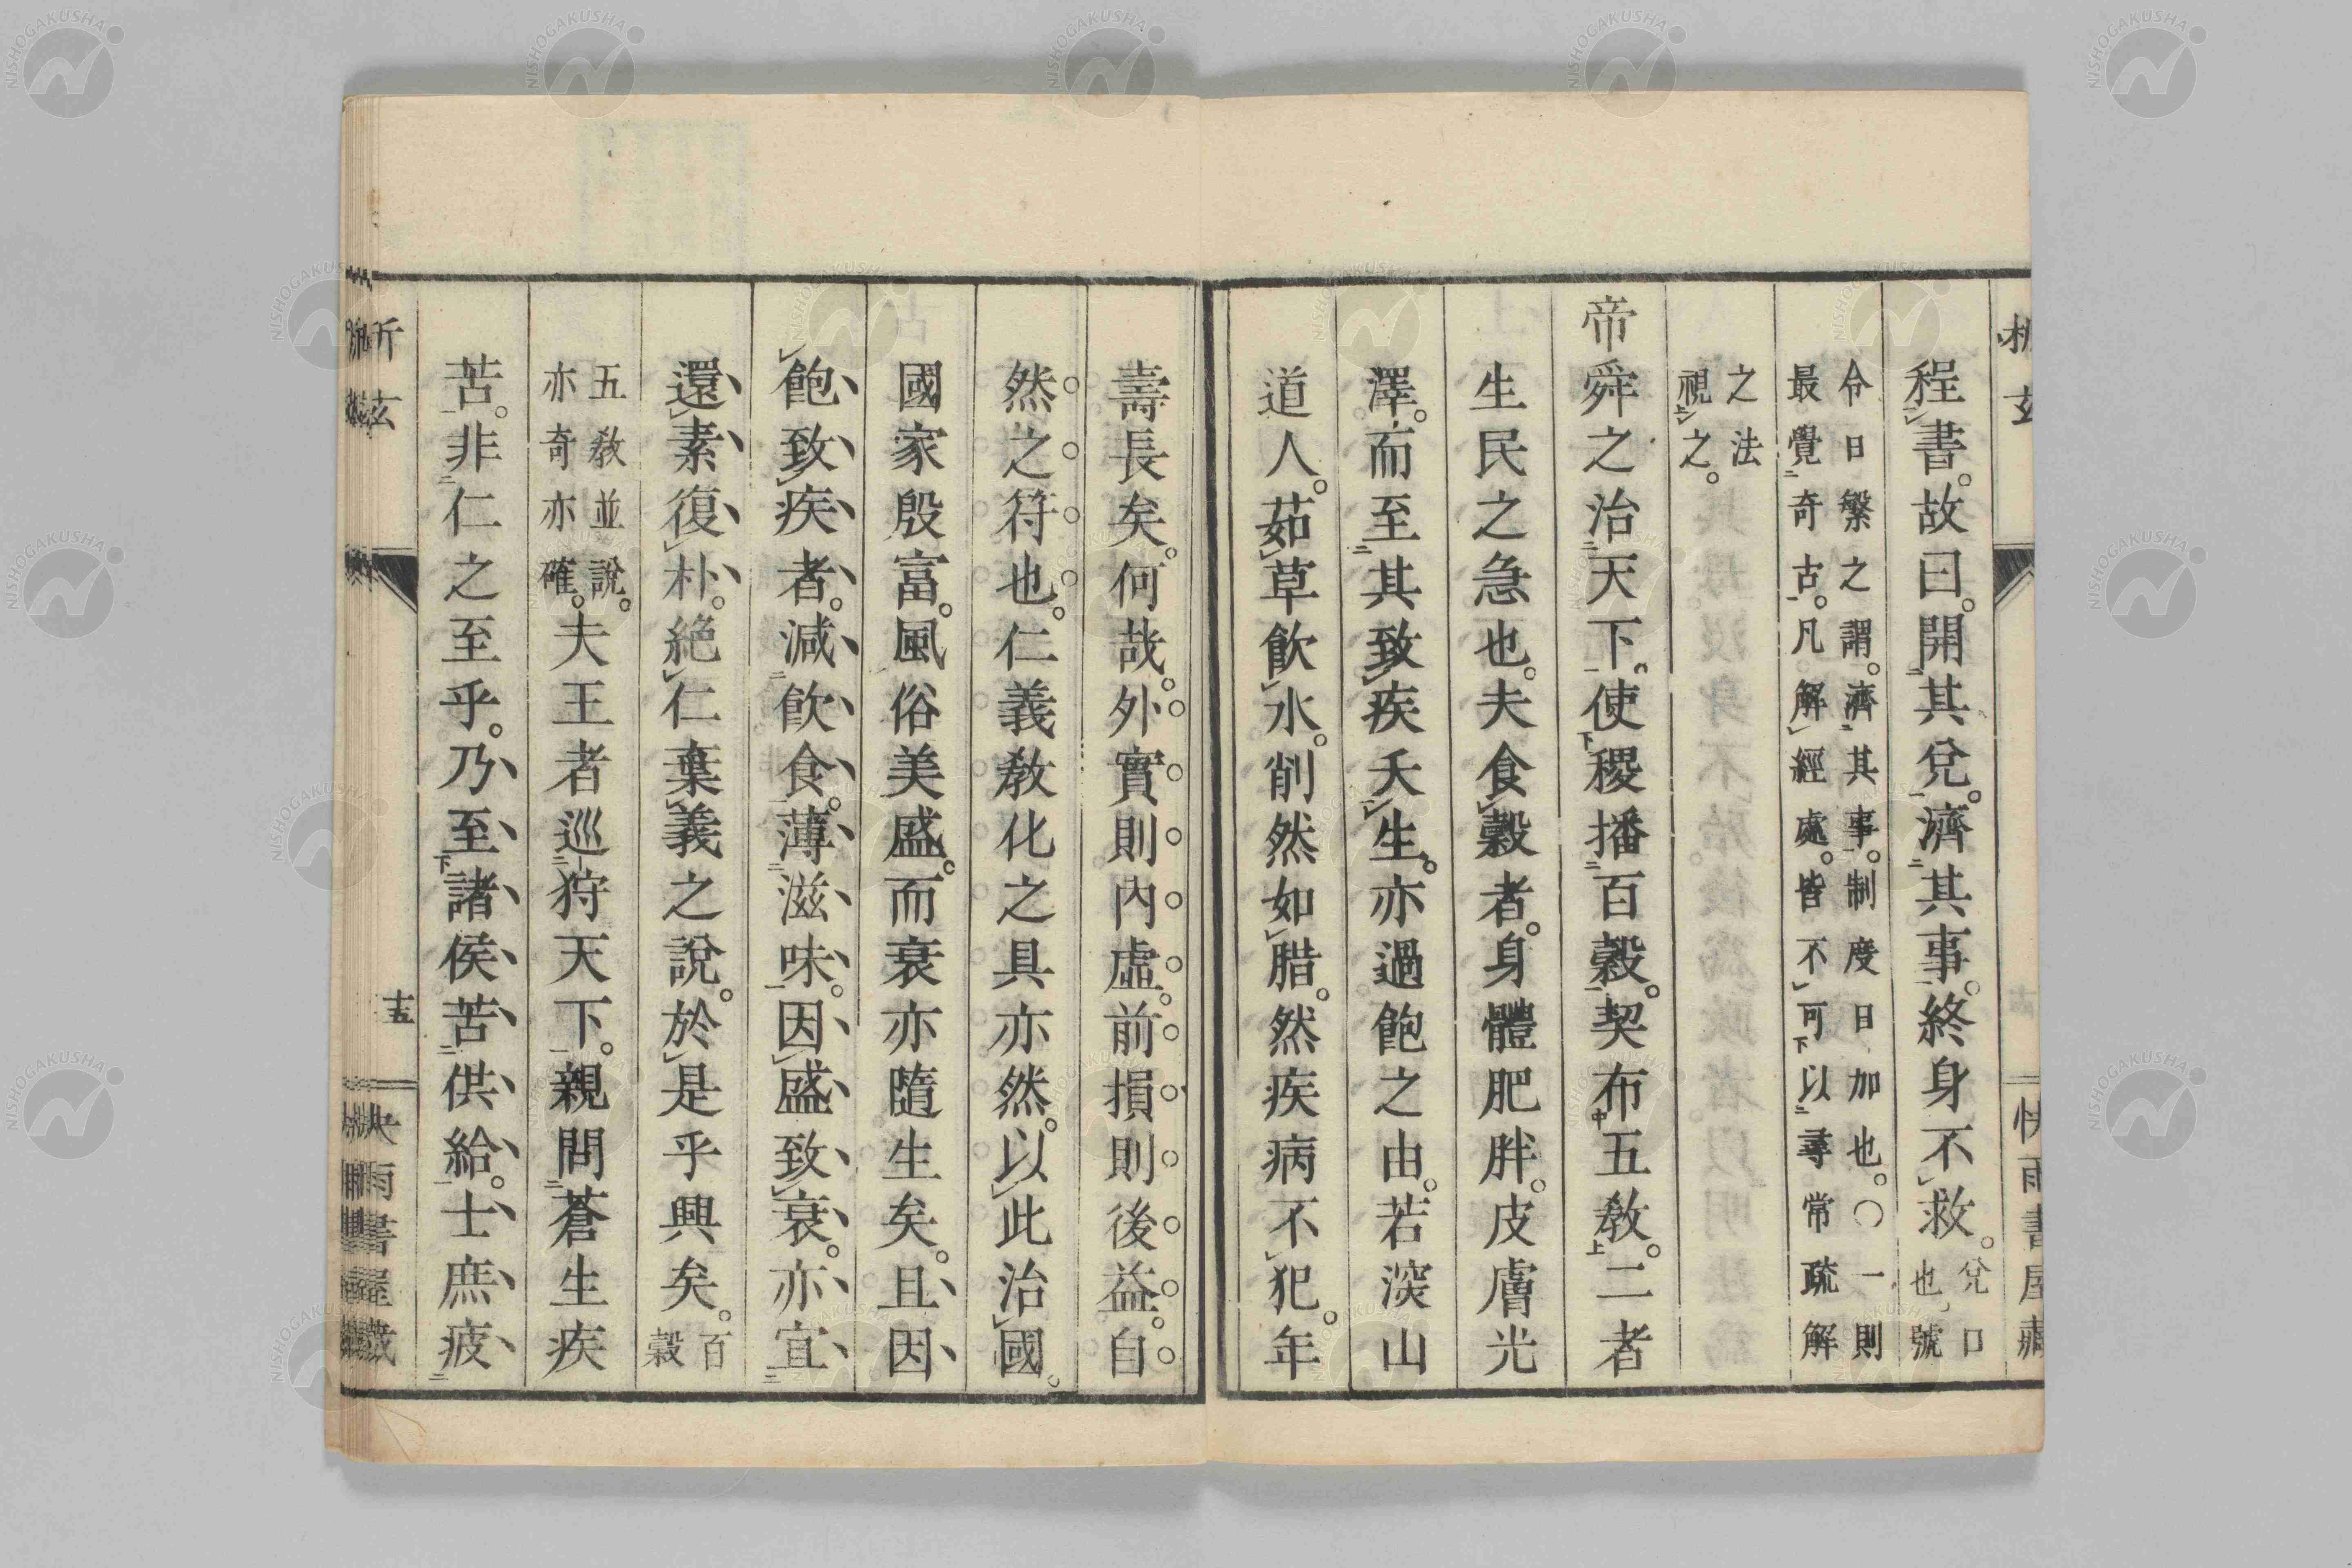 程書。故曰。開其兌。濟其事。終身不救。兌口也。號
令日繁之謂。濟其事。制度日加也。〇一則
最覺奇古。凡解經處。皆不可以尋常疏解
之法
視之。
帝舜之治天下。使稷播百穀。契布五教。二者
生民之急也。夫食穀者。身體肥胖。皮膚光
澤。而至其致疾夭生。亦過飽之由。若深山
道人。茹草飲水。削然如腊。然疾病不犯。年
壽長矣。何哉。外實則內虛。前損則後益。自
然之符也。仁義敎化之具亦然。以此治國。
國家殷富。風俗美盛。而衰亦隨生矣。且因
飽致疾者。減飮食。薄滋味。因盛致衰。亦宜
還素復朴。絕仁棄義之說。於是乎興矣。百穀
五敎並說。
亦奇亦確。夫王者巡狩天下。親問蒼生疾
苦。非仁之至乎。乃至諸侯苦供給。士庶疲
十五
快雨書屋藏
NISHOGAKUSHA